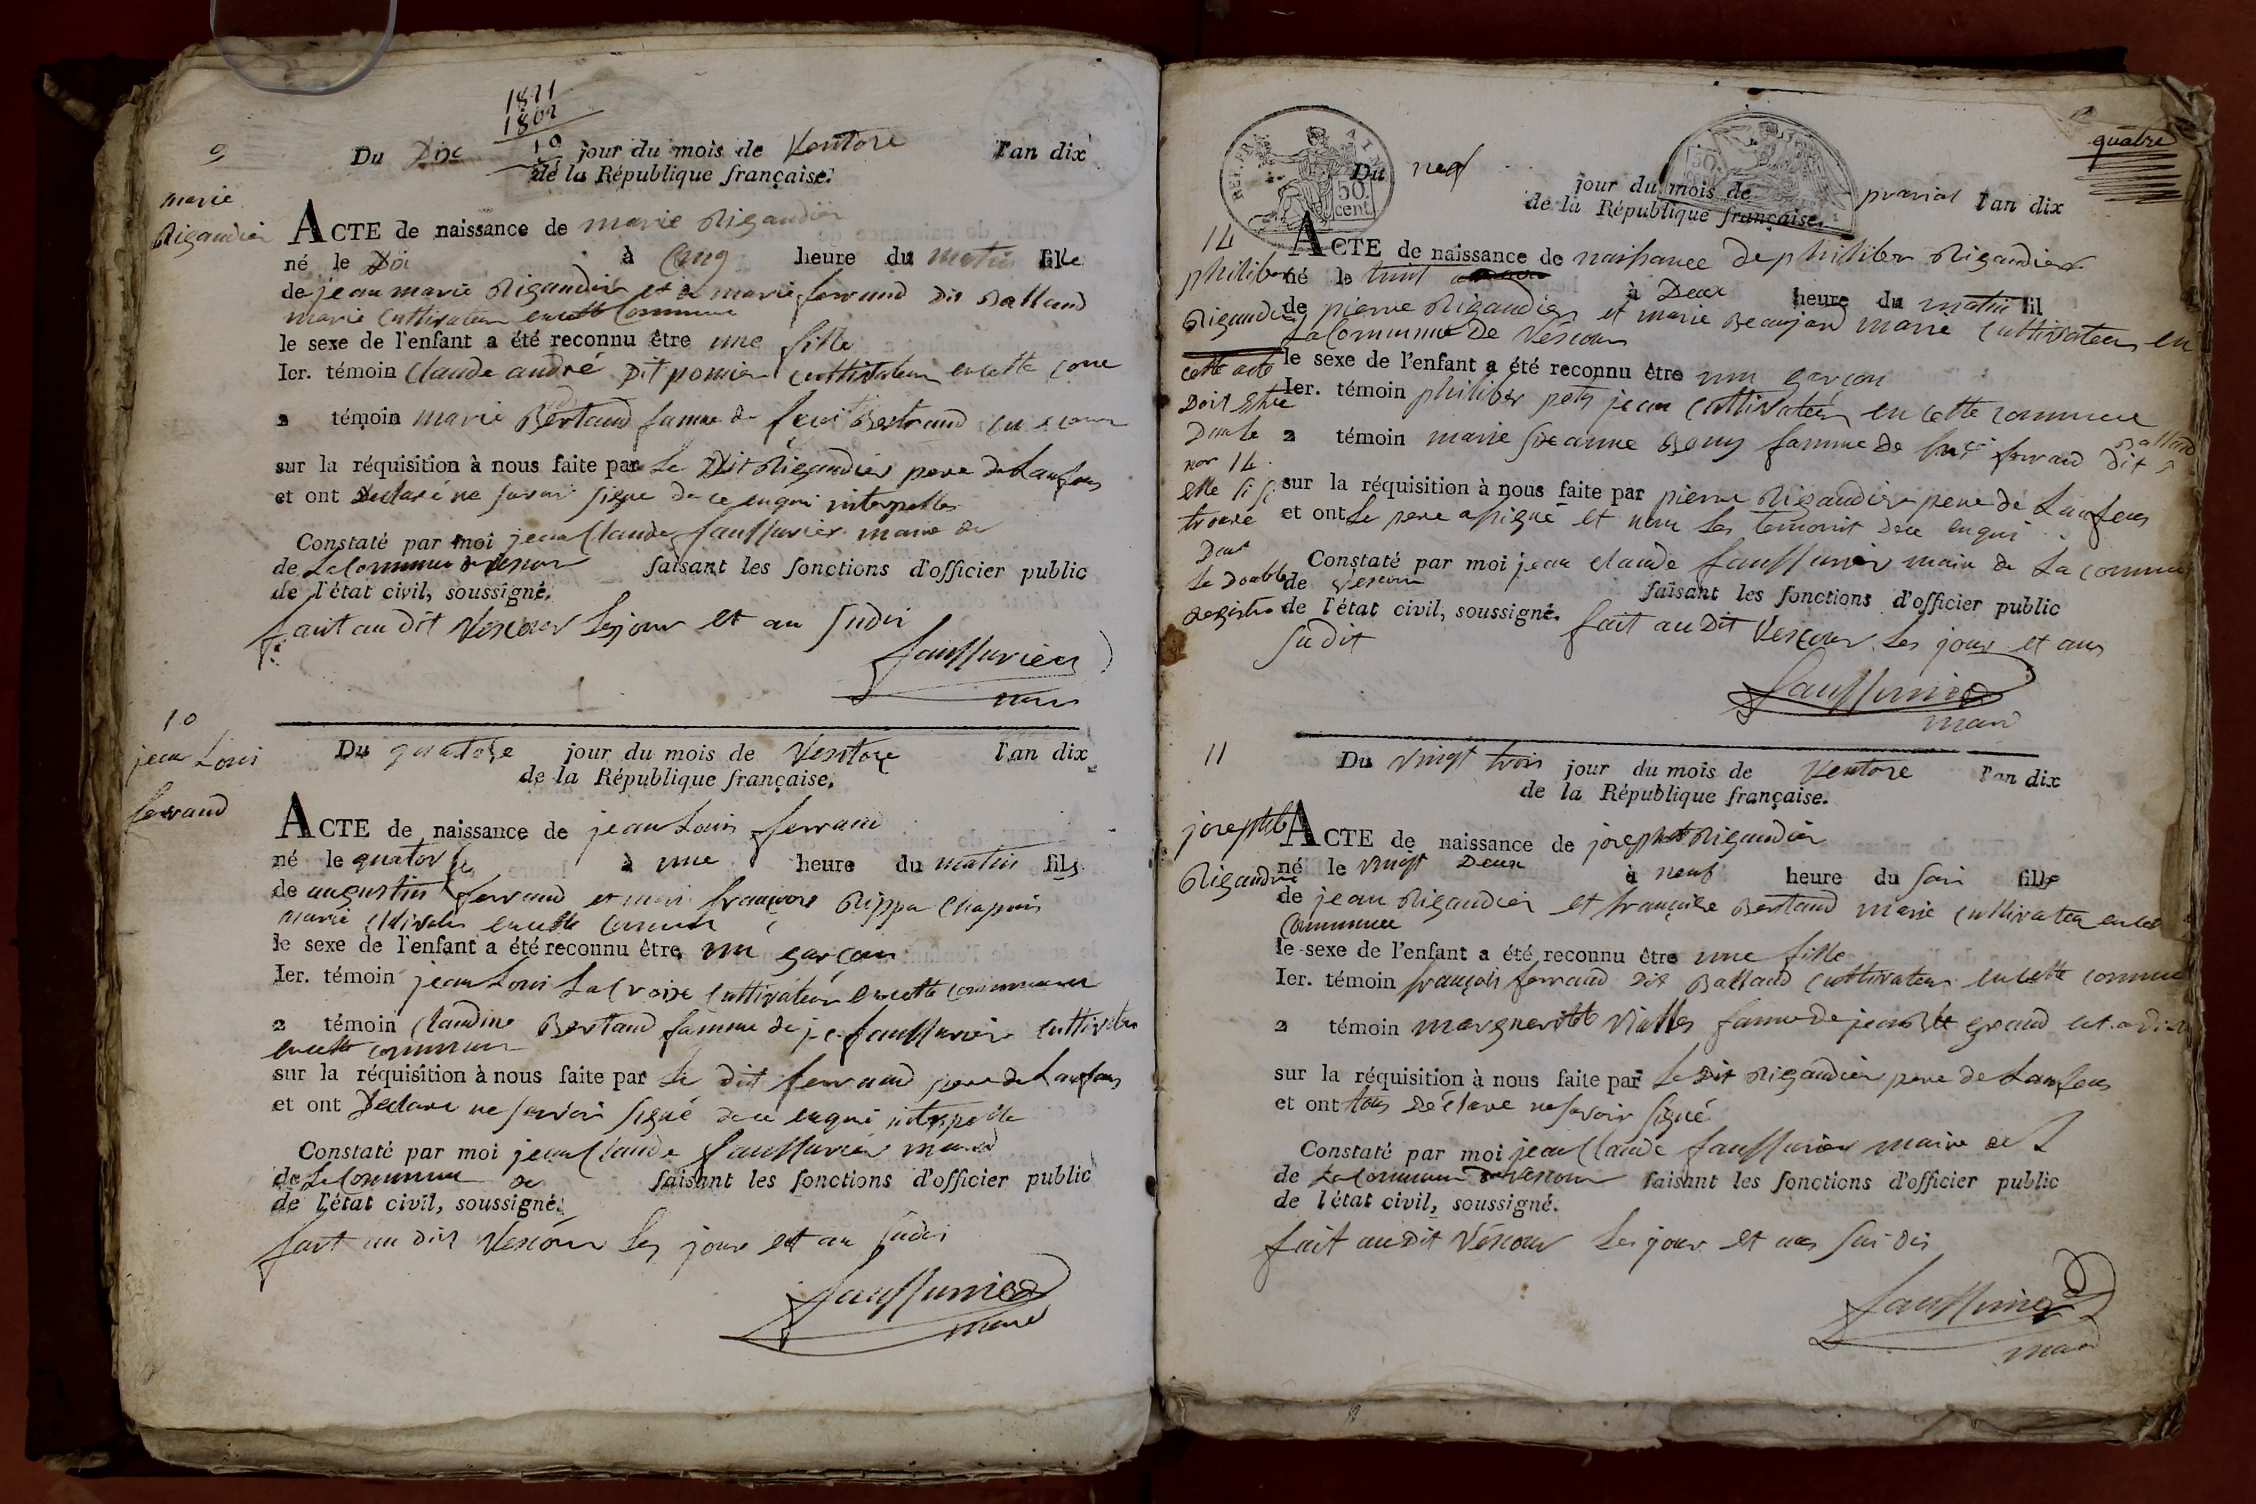 1821
1802
19
9
Du Dix jour du mois de Ventose l'an dix
de la République française.
marie
Rigaudier
ACTE de naissance de marie Rigaudier
né le Dix à Cinq heure du matin fille
de jean marie Rigaudier et de marie ferrand dit Balland
marié Cultivateur en cette Commune
le sexe de l'enfant a été reconnu être une fille
Ier. témoin Claude andré Dit pomier cultivateur en cette
2 témoin marie Bertaud famme de Bertrand
sur la réquisition à nous faite par Le Dit Rigaudier pere de Lanfans
et ont Declaré ne savoir signe de ce enqui interpelles
Constaté par moi jean Claude faussurier maire de
de La Commune de Vescour faisant les fonctions d'officier public
de l'état civil, soussigné.
fait au Dit Vescour les jour et an sudit
faussurier
maire
10
jean Loui
ferrand
Du quatorse jour du mois de Ventose l'an dix
de la République française.
ACTE de naissance de jean Louis ferrand
né le quatorse à une heure du matin fils
de augustin ferrand et françoise Rippa Chapuis
marié en cette Commune
le sexe de l'enfant a été reconnu être un garçon
Ier. témoin jean Loui La Croix Cultivateur en cette commune
2 témoin Claudine Bertaud famme de j. c. faussurier cultivateur
en cette commune
sur la réquisition à nous faite par Le dit ferrand pere de Lanfans
et ont Declare ne savoir signé de ce enqui interpelle
Constaté par moi jean Claude faussurier maire
de La Commune de faisant les fonctions d'officier public
de l'état civil, soussigné.
fait au dit Vescour les jour et an sudit
faussurier
maire
quatre
REP. FRA.
50
cent.
Du neuf jour du mois de prairial l'an dix
de la République française.
14
philiber
Rigaudier
cette acte
Doit Etre
Dans le
nor 14
Elle si
trouve
Dans
Le Double
Registre
ACTE de naissance de naissance De philiber Rigaudier
né le huit à Deux heure du matin fil
de pierre Rigaudier et marie Beaujard marié Cultivateur en
La Commune De Vescour
le sexe de l'enfant a été reconnu être un garçon
Ier. témoin philiber petit jean Cultivateur en cette commune
2 témoin marie famme de ferrand dit Balland
sur la réquisition à nous faite par pierre Rigaudier pere de Lanfens
et ont Le pere a signé et non Les temoins de ce enqui
Constaté par moi jean claude faussurier maire de La commune
de Vescour faisant les fonctions d'officier public
de l'état civil, soussigné. fait au Dit Vescour Les jour et ans
su dit
faussurier
maire
11
Du vingt trois jour du mois de Ventose l'an dix
de la République française.
josephte
Rigaudier
ACTE de naissance de josephte Rigaudier
né le vingt Deux à neuf heure du soir fille
de jean Rigaudier et françoise Bertaud marié Cultivateur en cette
Commune
le sexe de l'enfant a été reconnu être une fille
Ier. témoin françois ferrand Dit Balland Cultivateur en cette commune
2 témoin marguerite Viallet famme de jean grand
sur la réquisition à nous faite par Le Dit Rigaudier pere de Lanfens
et ont tous Déclare ne savoir signé
Constaté par moi jean Claude faussurier maire de
de La Commune de Vescour faisant les fonctions d'officier public
de l'état civil, soussigné.
fait au Dit Vescour Les jour et ans sus dit
faussurier
maire